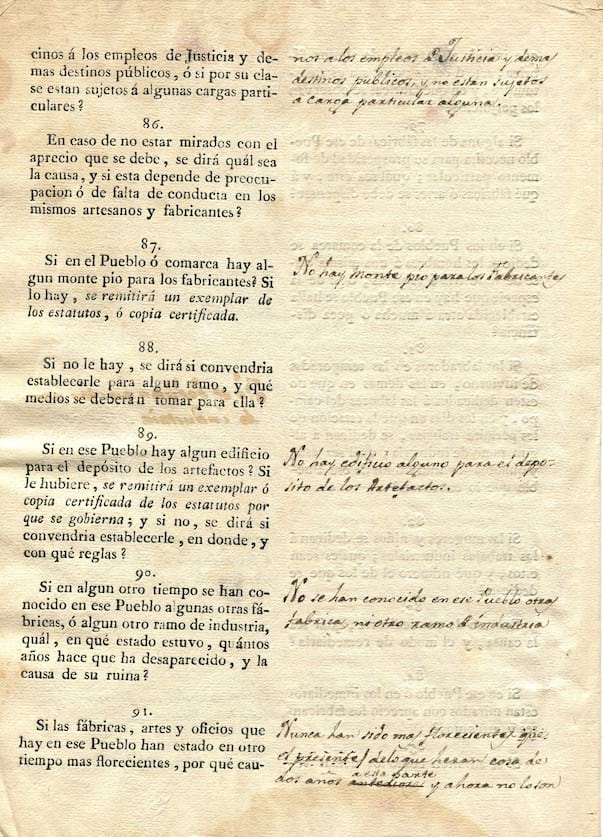 cinos á los empleos de Justicia y de-
mas destinos públicos, ó si por su cla-
se estan sujetos á algunas cargas parti-
culares?
nos a los empleos de Justicia y demas
destinos publicos, y no estan sujetos
a carga particular alguna.
86.
En caso de no estar mirados con el
aprecio que se debe, se dirá quál sea
la causa, y si esta depende de preocu-
pacion ó de falta de conducta en los
mismos artesanos y fabricantes?
87.
Si en el Pueblo ó comarca hay al-
gun monte pio para los fabricantes? Si
lo hay, se remitirá un exemplar de
los estatutos, ó copia certificada.
No hay monte pio para los Fabricantes
88.
Si no le hay, se dirá si convendria
establecerle para algun ramo, y qué
medios se deberán tomar para ella?
89.
Si en ese Pueblo hay algun edificio
para el depósito de los artefactos? Si
le hubiere, se remitirá un exemplar ó
copia certificada de los estatutos por
que se gobierna; y si no, se dirá si
convendria establecerle, en donde, y
con qué reglas?
No hay edificio alguno para el depo-
sito de los Artefactos.
90.
Si en algun otro tiempo se han co-
nocido en ese Pueblo algunas otras fá-
bricas, ó algun otro ramo de industria,
quál, en qué estado estuvo, quántos
años hace que ha desaparecido, y la
causa de su ruina?
No se han conocido en ese Pueblo otra
fabrica, ni otro ramo de industria
91.
Si las fábricas, artes y oficios que
hay en ese Pueblo han estado en otro
tiempo mas florecientes, por qué cau-
Nunca han sido mas florecientes que
el presente de lo que heran cosa de
dos años a esta parte y ahora no lo son